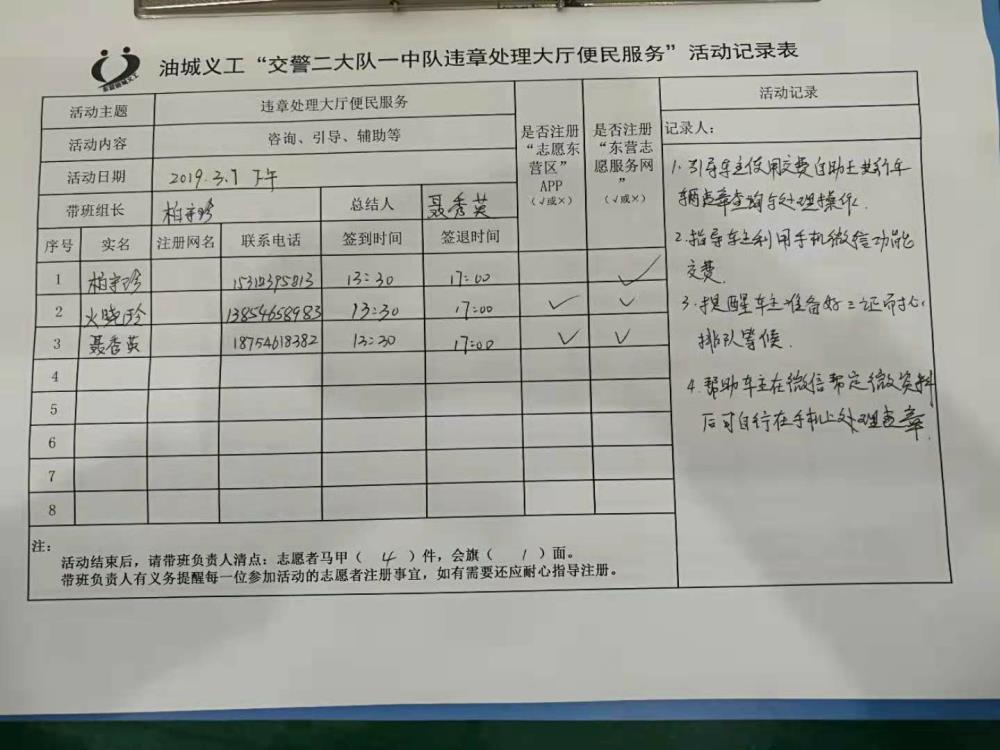 油城义工“交警二大队一中队违章处理大厅便民服务”活动记录表
活动主题 违章处理大厅便民服务
活动内容 咨询、引导、辅助等
活动日期 2019.3.7 下午
带班组长 总结人 聂秀英
是否注册“志愿东营区”APP（√或×）
是否注册“东营志愿服务网”（√或×）
序号 实名 注册网名 联系电话 签到时间 签退时间
1 13:30 17:00 √
2 13854658983 13:30 17:00 √ √
3 聂秀英 18754618382 13:30 17:00 √ √
4
5
6
7
8
活动记录
记录人：
1.引导车主使用交费自助
查询与处理操作.
2.指导车主利用手机微信功能
交费.
3.提醒车主准备好三证
排队等候.
4.帮助车主在微信帮定缴资料
后可自行在手机上处理违章.
注：
活动结束后，请带班负责人清点：志愿者马甲（ 4 ）件，会旗（ 1 ）面。
带班负责人有义务提醒每一位参加活动的志愿者注册事宜，如有需要还应耐心指导注册。